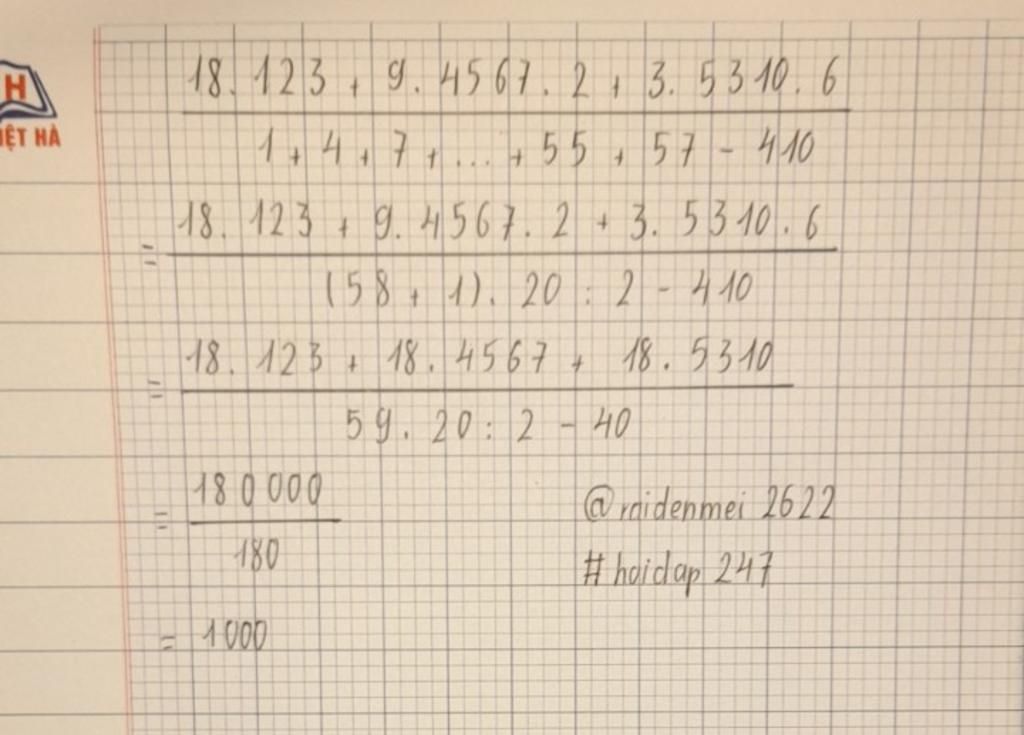 H
IỆT HÀ
18. 123 + 9. 4567. 2 + 3. 5310. 6
1 + 4 + 7 + ... + 55 + 57 - 410
= 18. 123 + 9. 4567. 2 + 3. 5310. 6
(58 + 1). 20 : 2 - 410
= 18. 123 + 18. 4567 + 18. 5310
59. 20 : 2 - 40
= 180 000
180
@raidenmei 2622
#hoidap 247
= 1000